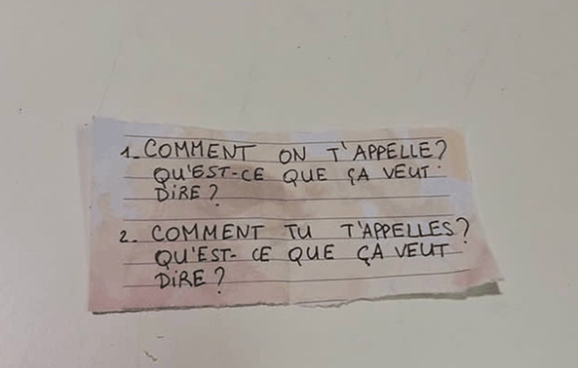 1_ COMMENT ON T'APPELLE?
QU'EST-CE QUE ÇA VEUT
DIRE?
2. COMMENT TU T'APPELLES?
QU'EST-CE QUE ÇA VEUT
DIRE?